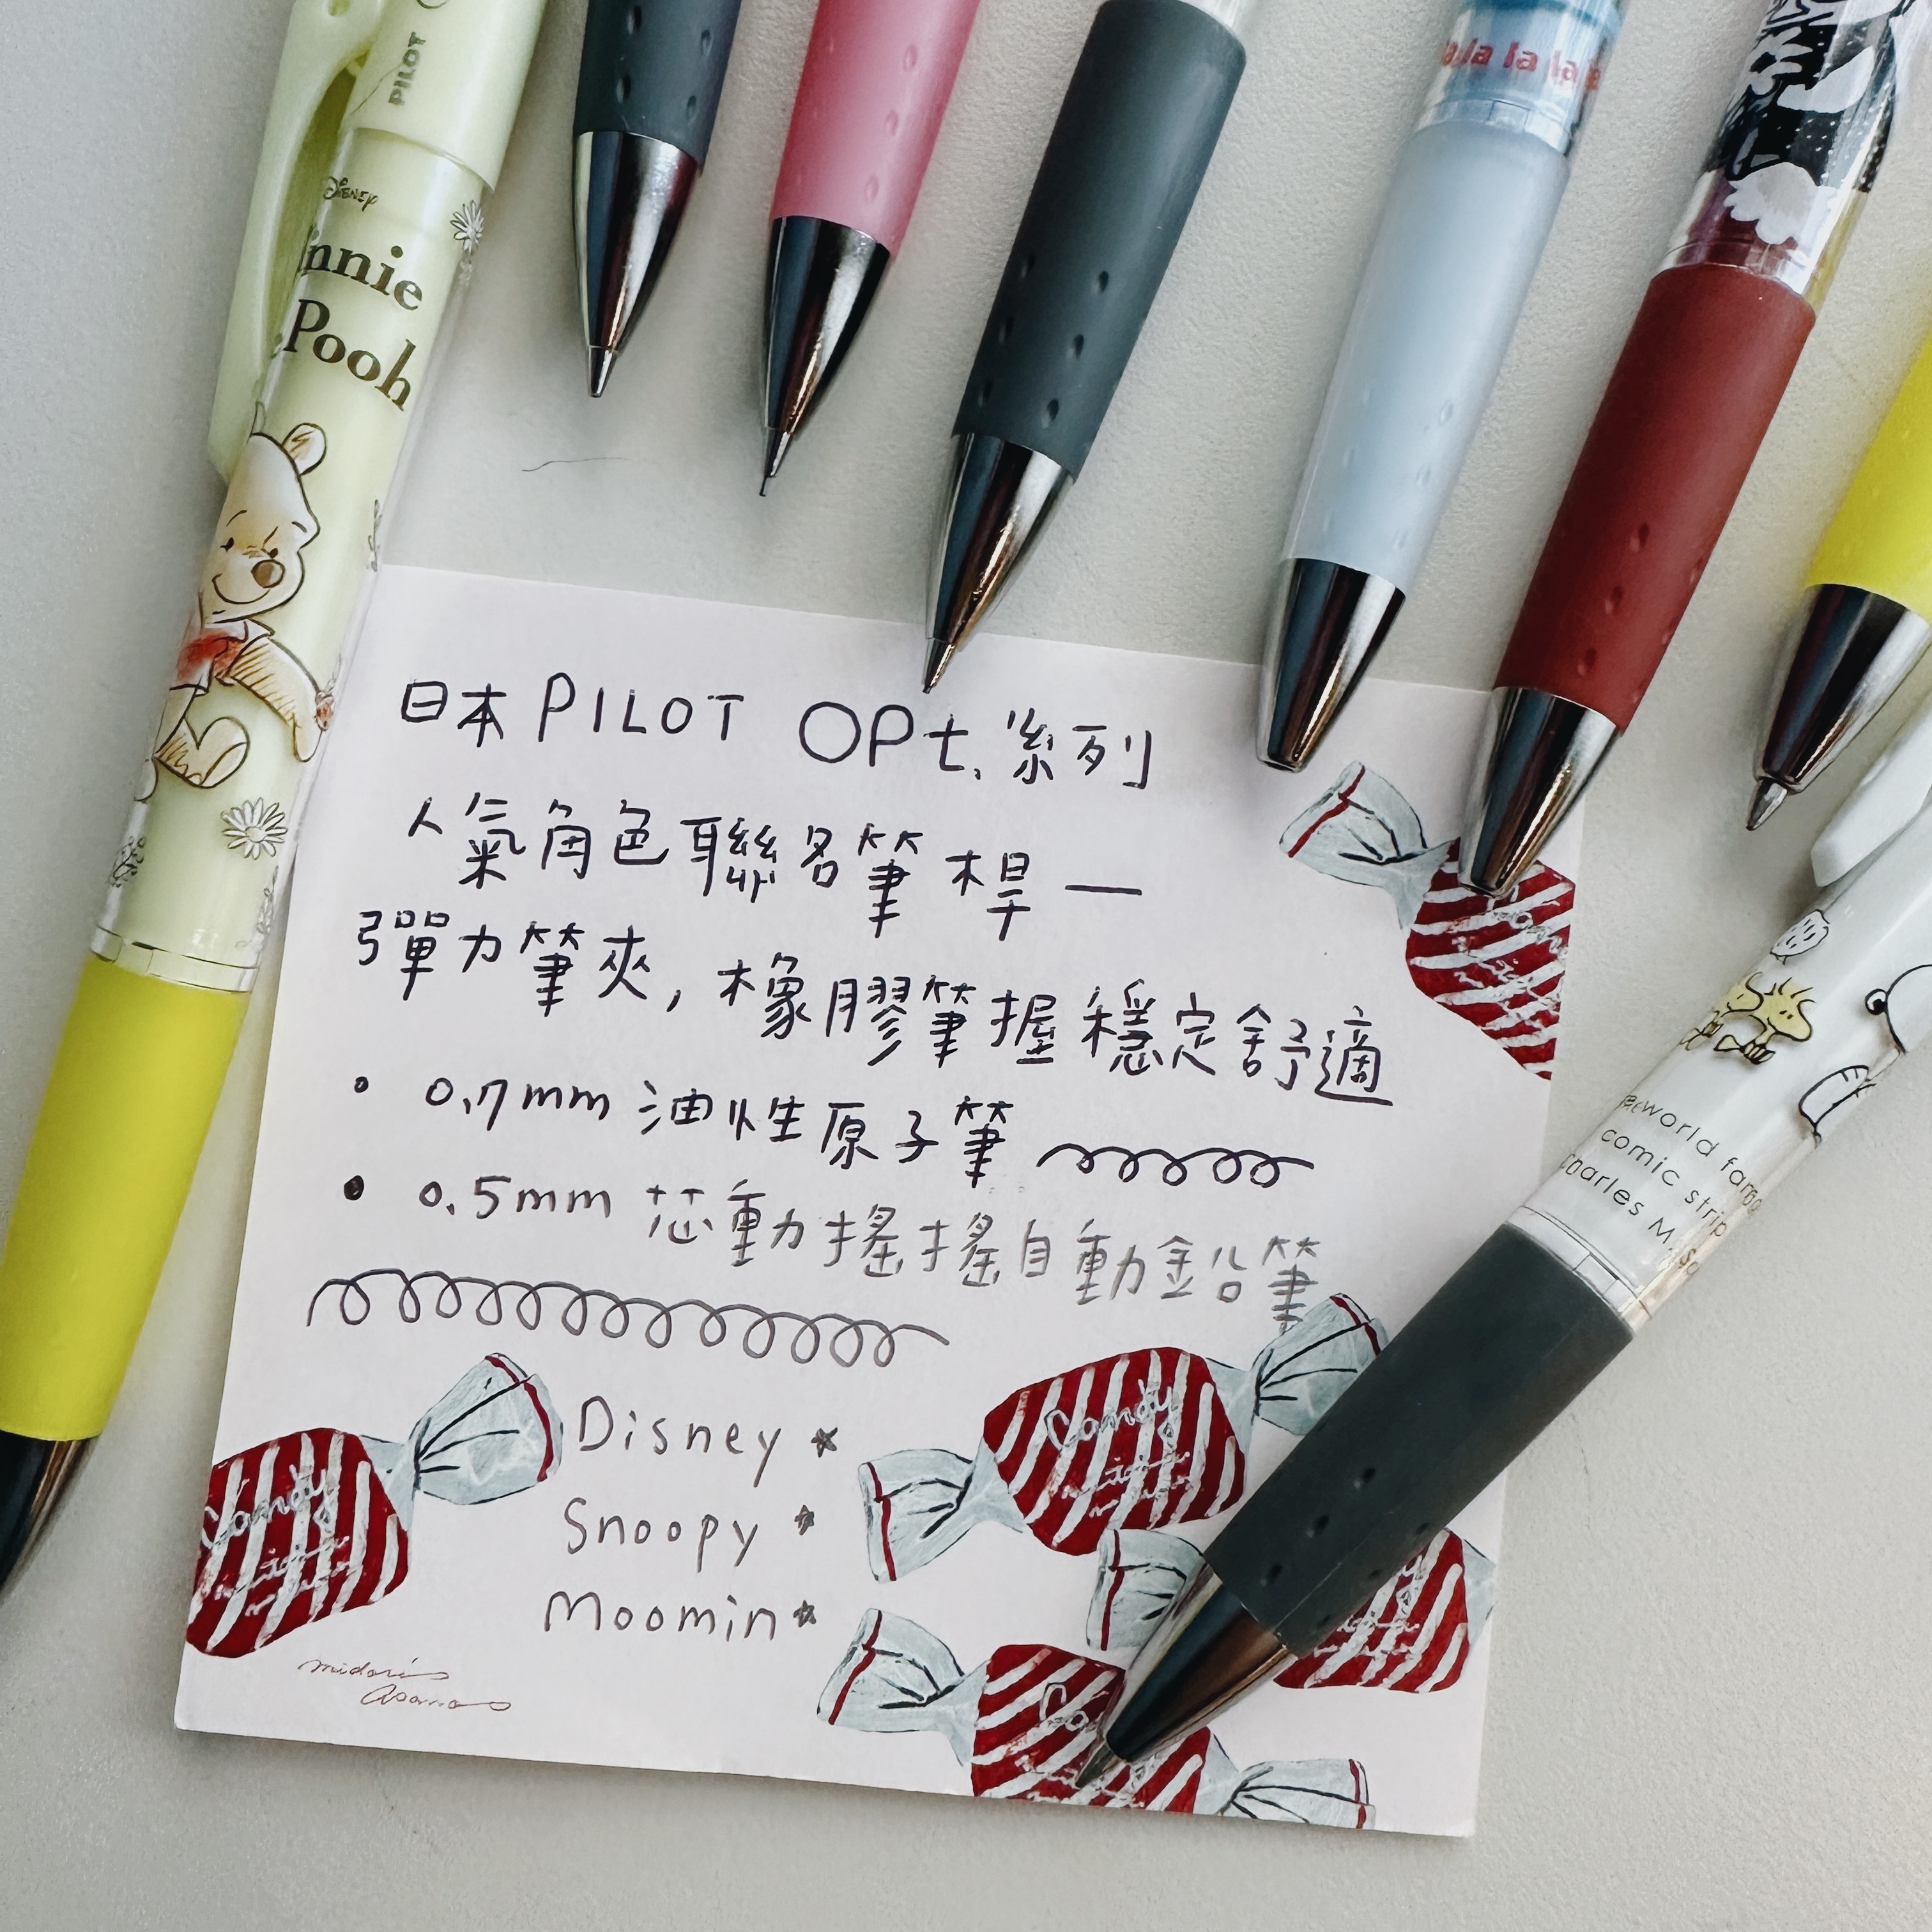 PILOT
Disney
innie
Pooh
la la la
日本 PILOT OPt. 系列
人氣角色聯名筆桿—
彈力筆夾，橡膠筆握穩定舒適
• 0.7mm 油性原子筆
• 0.5mm 芯動搖搖自動鉛筆
Disney ★
Snoopy ★
Moomin ★
midori
asano
Candy
Candy
world
comic strip
Charles M.